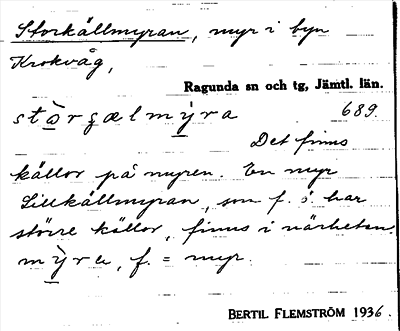 Storkällmyran, myr i byn
Krokvåg,
Ragunda sn och tg, Jämtl. län.
stò̱rçælmỳ̱ra 689.
Det finns
källor på myren. En myr
Lillkällmyran, som f. ö. har
större källor, finns i närheten.
mỳ̱ra, f. = myr.
BERTIL FLEMSTRÖM 1936.